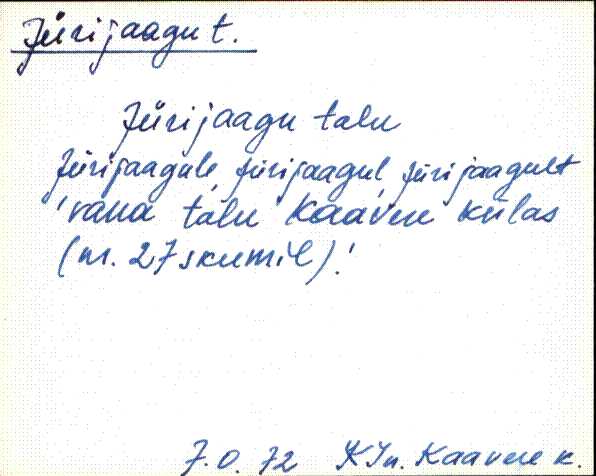 Jürijaagu t.
Jürijaagu talu
Jürijaagule, Jürijaagul, Jürijaagult
'vana talu Kaavere külas
(nr. 27 skeemil).'
7.0.72 KJn. Kaavere k.